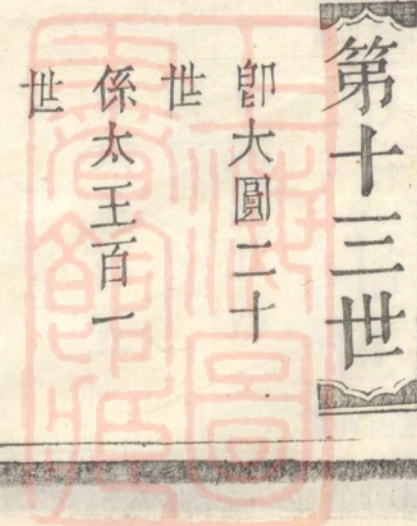 第十三世
卽大圓二十
世
係太王百一
世